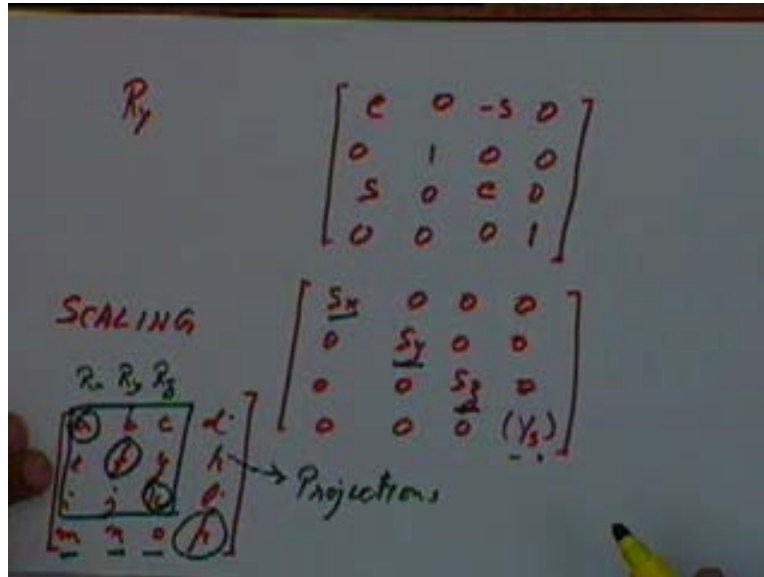 Ry
c 0 -s 0
0 1 0 0
s 0 c 0
0 0 0 1
SCALING
Sx 0 0 0
0 Sy 0 0
0 0 Sz 0
0 0 0 (1/s)
Rx Ry Rz
a b c d
e f g h
i j k l
m n o p
Projections